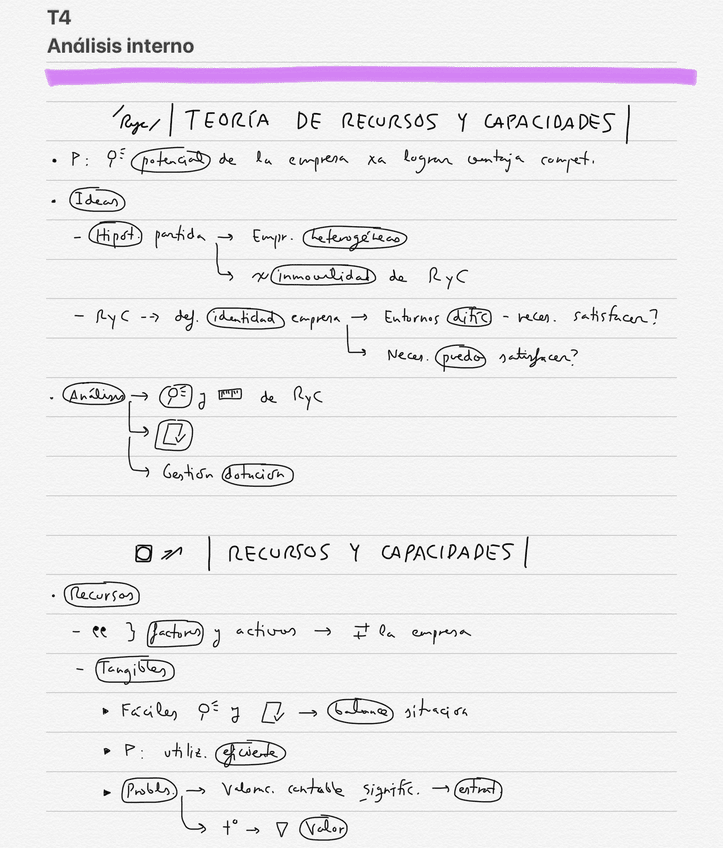 T4
Análisis interno
/RyC/ | TEORÍA DE RECURSOS Y CAPACIDADES |
• P: potencial de la empresa xa lograr ventaja compet.
• Ideas
- Hipót. partida → Empr. heterogéneas
↳ x inmovilidad de RyC
- RyC --> def. identidad empresa → Entornos dific - neces. satisfacer?
↳ Neces. puedo satisfacer?
• Análisis → y de RyC
↳
↳ Gestión dotación
| RECURSOS Y CAPACIDADES |
• Recursos
- } factores y activos → la empresa
- Tangibles
▸ Fáciles y → balance situación
▸ P: utiliz. eficiente
▸ Probls → Valorac. contable signific. → estrat
↳ t° → ∇ Valor